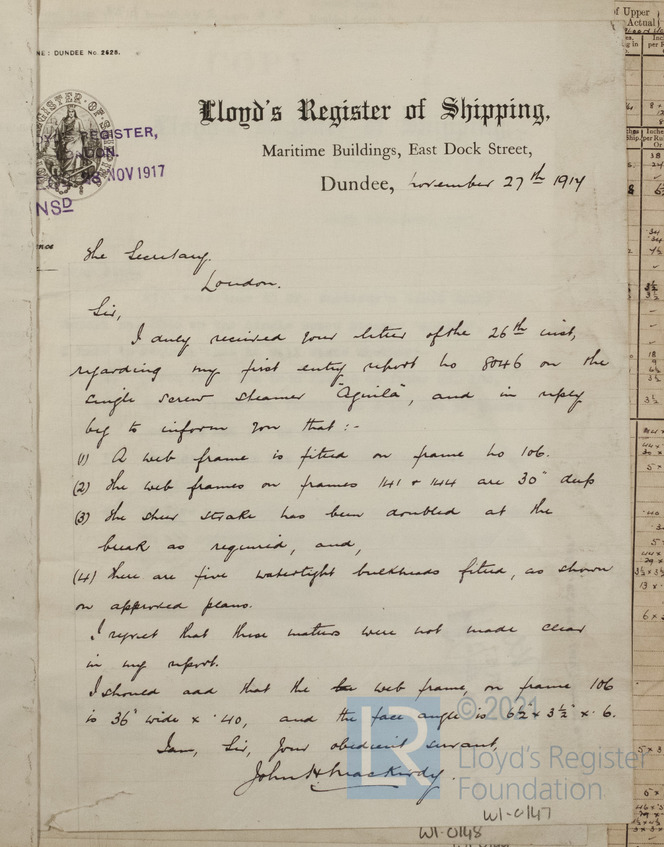 NE: DUNDEE No. 2628.
Lloyd's Register of Shipping,
Maritime Buildings, East Dock Street,
Dundee, November 27th 1917
REGISTER,
NOV 1917
NSD
The Secretary.
London.
Sir,
I duly received your letter of the 26th inst,
regarding my first entry report No 8046 on the
single screw steamer "Aguila", and in reply
beg to inform you that :-
(1) A web frame is fitted on frame No 106.
(2) The web frames on frames 141 & 144 are 30" deep
(3) The sheer strake has been doubled at the
break as required, and,
(4) There are five watertight bulkheads fitted, as shown
on approved plans.
I regret that these matters were not made clear
in my report.
I should add that the web frame, on frame 106
is 36" wide x .40, and the face angle is 6½" x 3½" x .6.
I am, Sir, Your obedient servant,
John H. Mackirdy.
© 2021
LR
Lloyd's Register
Foundation
W1-0147
W1-0148
of Upper
Actual